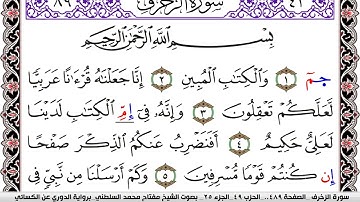 ٨٩ سورة الزخرف ٤٣
بِسْمِ ٱللَّهِ ٱلرَّحْمَٰنِ ٱلرَّحِيمِ
حمٓ ١ وَٱلْكِتَٰبِ ٱلْمُبِينِ ٢ إِنَّا جَعَلْنَٰهُ قُرْءَٰنًا عَرَبِيًّا
لَعَلَّكُمْ تَعْقِلُونَ ٣ وَإِنَّهُۥ فِىٓ إِمِّ ٱلْكِتَٰبِ لَدَيْنَا
لَعَلِىٌّ حَكِيمٌ ٤ أَفَنَضْرِبُ عَنكُمُ ٱلذِّكْرَ صَفْحًا
إِن كُنتُمْ قَوْمًا مُّسْرِفِينَ ٥ وَكَمْ أَرْسَلْنَا مِن نَّبِىٍّ فِى
سورة الزخرف _الصفحة ٤٨٩... الحزب ٤٩_الجزء ٢٥_ بصوت الشيخ مفتاح محمد السلطني_برواية الدوري عن الكسائي